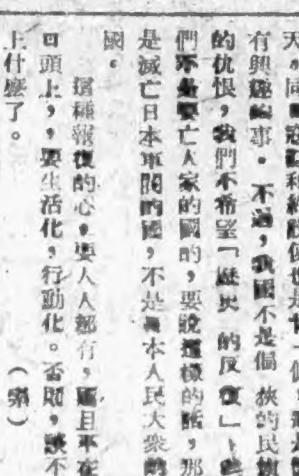 有興趣的事。不過，我國不是偏狹的民族
的仇恨，我們不希望「歷史的反復」，
們不是要亡人家的國的，要說這樣的話，那
是滅亡日本軍閥的國，不是日本人民大衆的
國。
這種報復的心，要人人都有，而且不在
口頭上，要生活化，行動化。否則，談不
上什麼了。